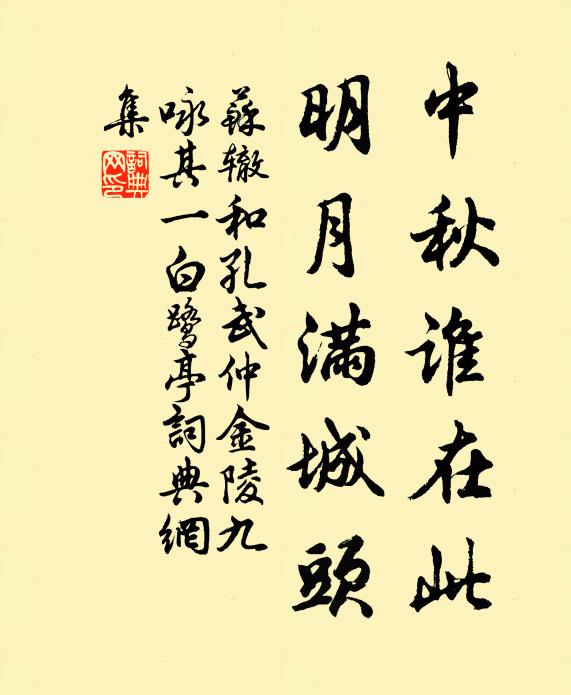 中秋誰在此
明月滿城頭
蘇辙和孔武仲金陵九
咏其一白鹭亭詞典網
集
詞典网印